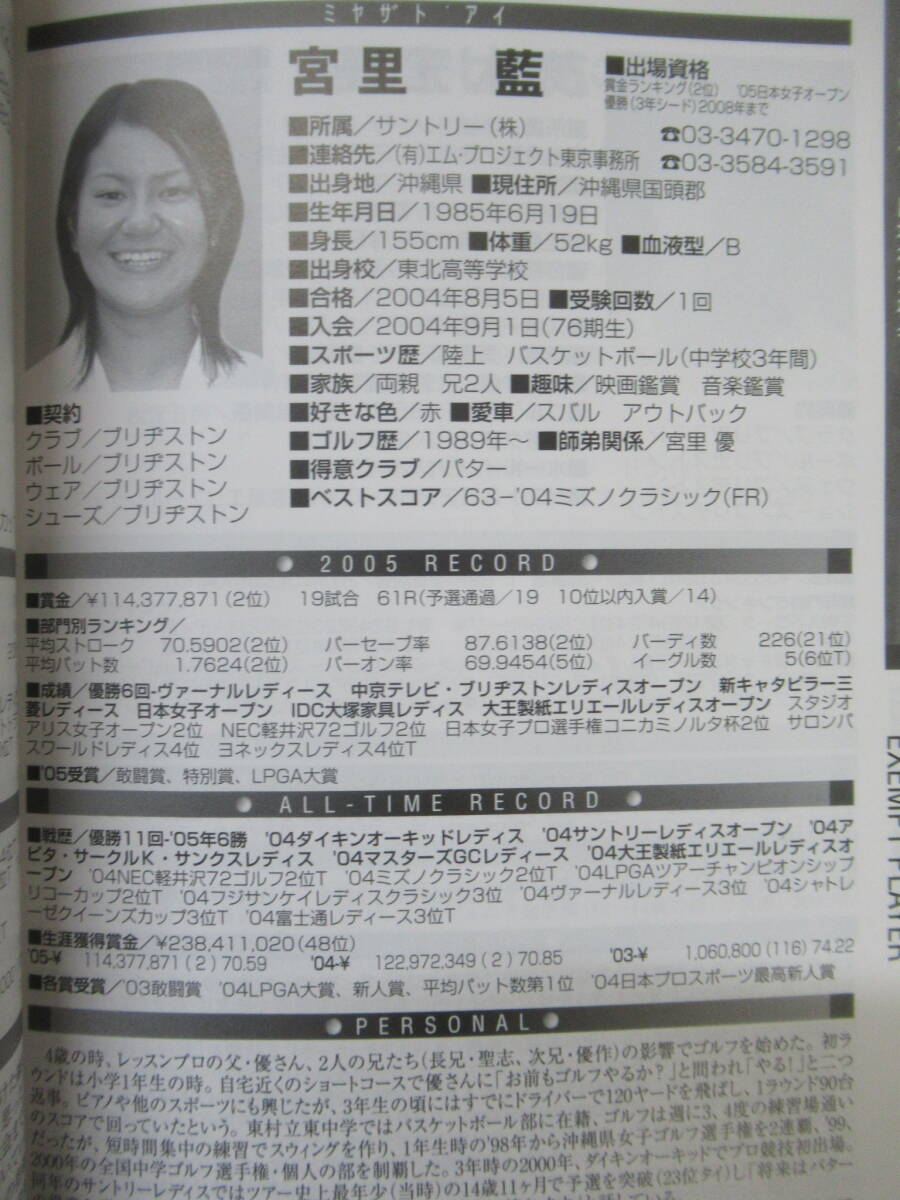 ミヤザト アイ
宮里 藍
■出場資格
賞金ランキング(2位) '05日本女子オープン
優勝(3年シード)2008年まで
■所属/サントリー(株) ☎03-3470-1298
■連絡先/(有)エム・プロジェクト東京事務所 ☎03-3584-3591
■出身地/沖縄県 ■現住所/沖縄県国頭郡
■生年月日/1985年6月19日
■身長/155cm ■体重/52kg ■血液型/B
■出身校/東北高等学校
■合格/2004年8月5日 ■受験回数/1回
■入会/2004年9月1日(76期生)
■スポーツ歴/陸上 バスケットボール(中学校3年間)
■家族/両親 兄2人 ■趣味/映画鑑賞 音楽鑑賞
■好きな色/赤 ■愛車/スバル アウトバック
■ゴルフ歴/1989年~ ■師弟関係/宮里 優
■得意クラブ/パター
■ベストスコア/63-'04ミズノクラシック(FR)
■契約
クラブ/ブリヂストン
ボール/ブリヂストン
ウェア/ブリヂストン
シューズ/ブリヂストン
2005 RECORD
■賞金/¥114,377,871(2位) 19試合 61R(予選通過/19 10位以内入賞/14)
■部門別ランキング/
平均ストローク 70.5902(2位) パーセーブ率 87.6138(2位) バーディ数 226(21位)
平均パット数 1.7624(2位) パーオン率 69.9454(5位) イーグル数 5(6位T)
■成績/優勝6回-ヴァーナルレディース 中京テレビ・ブリヂストンレディスオープン 新キャタピラー三
菱レディース 日本女子オープン IDC大塚家具レディス 大王製紙エリエールレディスオープン スタジオ
アリス女子オープン2位 NEC軽井沢72ゴルフ2位 日本女子プロ選手権コニカミノルタ杯2位 サロンパ
スワールドレディス4位 ヨネックスレディス4位T
■'05受賞/敢闘賞、特別賞、LPGA大賞
ALL-TIME RECORD
■戦歴/優勝11回-'05年6勝 '04ダイキンオーキッドレディス '04サントリーレディスオープン '04ア
ピタ・サークルK・サンクスレディス '04マスターズGCレディース '04大王製紙エリエールレディスオ
ープン '04NEC軽井沢72ゴルフ2位T '04ミズノクラシック2位T '04LPGAツアーチャンピオンシップ
リコーカップ2位T '04フジサンケイレディスクラシック3位 '04ヴァーナルレディース3位 '04シャトレ
ーゼクイーンズカップ3位T '04富士通レディース3位T
■生涯獲得賞金/¥238,411,020(48位)
'05-¥ 114,377,871(2)70.59 '04-¥ 122,972,349(2)70.85 '03-¥ 1,060,800(116)74.22
■各賞受賞/'03敢闘賞 '04LPGA大賞、新人賞、平均パット数第1位 '04日本プロスポーツ最高新人賞
PERSONAL
4歳の時、レッスンプロの父・優さん、2人の兄たち(長兄・聖志、次兄・優作)の影響でゴルフを始めた。初ラ
ウンドは小学1年生の時。自宅近くのショートコースで優さんに「お前もゴルフやるか?」と問われ「やる!」と二つ
返事。ピアノや他のスポーツにも興じたが、3年生の頃にはすでにドライバーで120ヤードを飛ばし、1ラウンド90台
のスコアで回っていたという。東村立東中学ではバスケットボール部に在籍、ゴルフは週に3、4度の練習場通い
だったが、短時間集中の練習でスウィングを作り、1年生時の'98年から沖縄県女子ゴルフ選手権を2連覇、'99、
2000年の全国中学ゴルフ選手権・個人の部を制覇した。3年時の2000年、ダイキンオーキッドでプロ競技初出場。
同年のサントリーレディスではツアー史上最年少(当時)の14歳11ヶ月で予選を突破(23位タイ)し「将来はパター
EXEMPT PLAYER